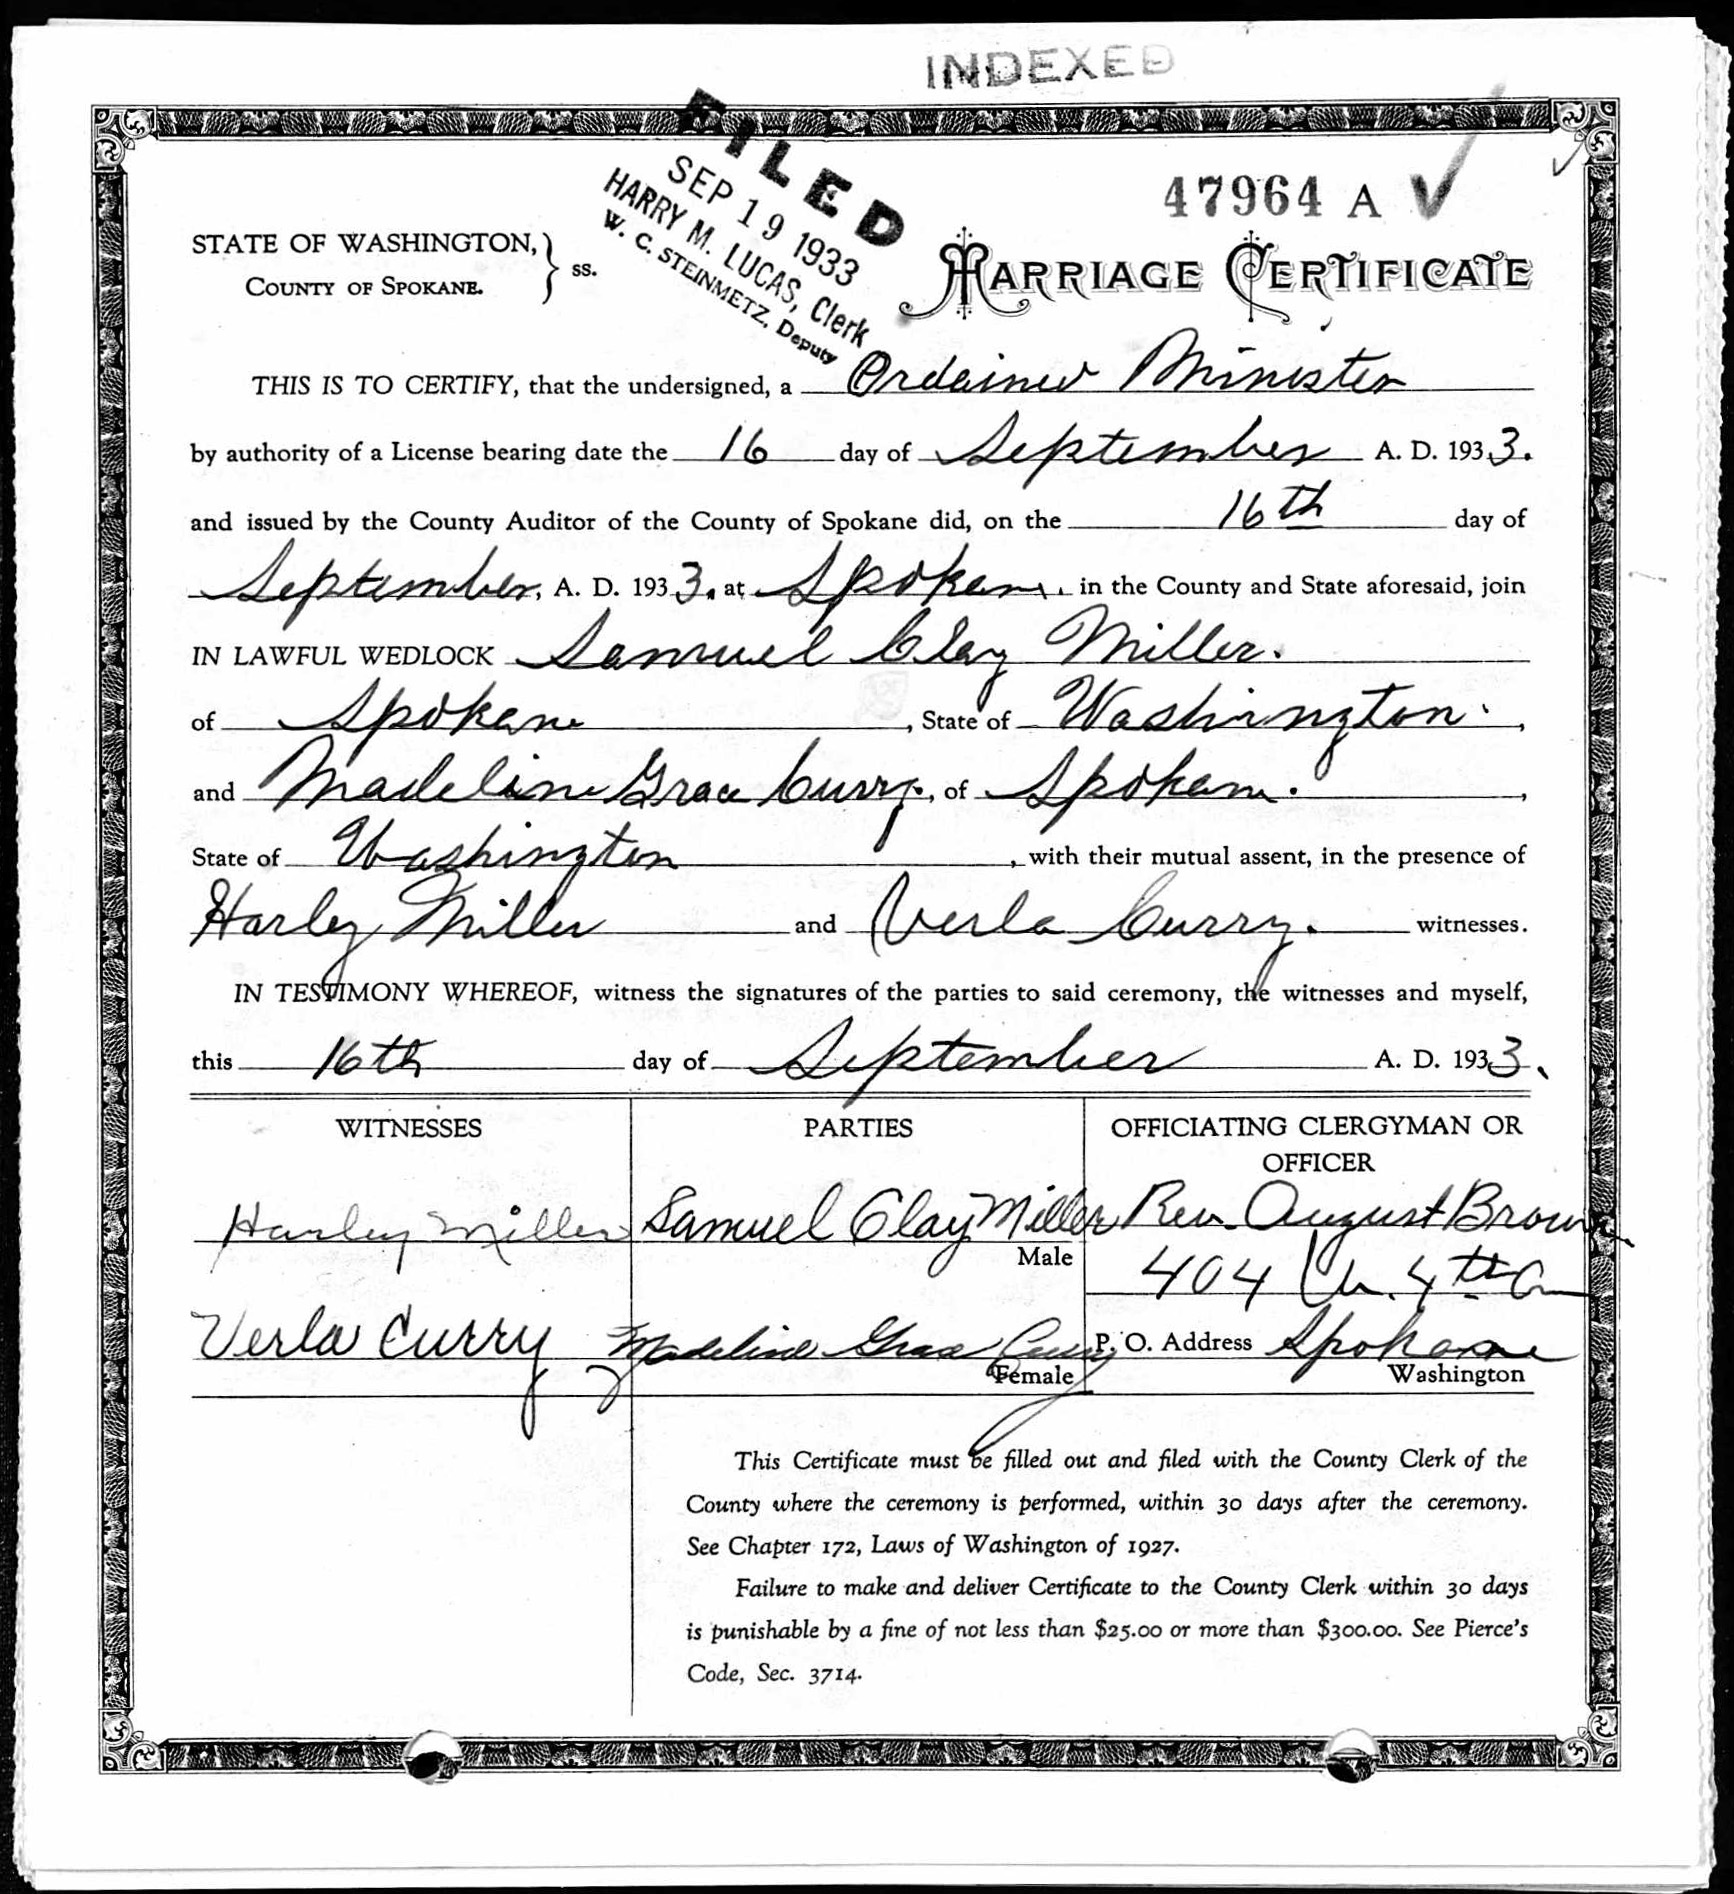 INDEXED
FILED
SEP 19 1933
HARRY M. LUCAS, Clerk
W. C. STEINMETZ, Deputy
47964 A
STATE OF WASHINGTON,
COUNTY OF SPOKANE.
} ss.
MARRIAGE CERTIFICATE
THIS IS TO CERTIFY, that the undersigned, a Ordained Minister
by authority of a License bearing date the 16 day of September A. D. 1933.
and issued by the County Auditor of the County of Spokane did, on the 16th day of
September, A. D. 1933, at Spokane, in the County and State aforesaid, join
IN LAWFUL WEDLOCK Samuel Clay Miller.
of Spokane, State of Washington,
and Madeline Grace Curry, of Spokane.,
State of Washington, with their mutual assent, in the presence of
Harley Miller and Verla Curry. witnesses.
IN TESTIMONY WHEREOF, witness the signatures of the parties to said ceremony, the witnesses and myself,
this 16th day of September A. D. 1933.
WITNESSES
Harley Miller
Verla Curry
PARTIES
Samuel Clay Miller
Male
Madeline Grace Curry
Female
OFFICIATING CLERGYMAN OR
OFFICER
Rev. August Brown
404 4th
P. O. Address Spokane
Washington
This Certificate must be filled out and filed with the County Clerk of the
County where the ceremony is performed, within 30 days after the ceremony.
See Chapter 172, Laws of Washington of 1927.
Failure to make and deliver Certificate to the County Clerk within 30 days
is punishable by a fine of not less than $25.00 or more than $300.00. See Pierce's
Code, Sec. 3714.